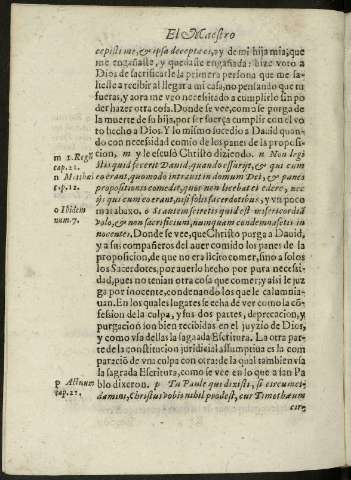 El Maestro
cepisti me, & ipsa decepta es, ay de mi hija mia, que
me engañaste, y quedaste engañada: hize voto a
Dios de sacrificarle la primera persona que me sa-
lieste a recibir al llegar a mi casa, no pensando que tu
fueras, y aora me veo necessitado a cumplirlo sin po
der hazer otra cosa. Donde se vee, como se purga de
la muerte de su hija, por ser fuerça cumplir con el vo
to hecho a Dios. Y lo mismo sucedio a Dauid quan-
do con necessidad comio de los panes de la proposi-
cion, m y le escusò Christo diziendo. n Non legi
stis quid fecerit Dauid, quando essurijt, & qui cum
eo erant, quomodo intrauit in domum Dei, & panes
propositionis comedit, quos non licebat ei edere, nec
ijs qui cum eo erant, nisi solis sacerdotibus; y vn poco
mas abaxo. o Si autem sciretis quid est misericordiã
volo, & non sacrificium, nunquam condemnassetis in
nocentes. Donde se vee, que Christo purga a Dauid,
y a sus compañeros del auer comido los panes de la
proposicion, de que no era licito comer, sino a solos
los Sacerdotes, por auerlo hecho por pura necessi-
dad, pues no tenian otra cosa que comer; y assi le juz
ga por inocente, condenando los que le calumnia-
uan. En los quales lugares se echa de ver como la cõ-
fession de la culpa, y sus dos partes, deprecacion, y
purgaciõ son bien recibidas en el juyzio de Dios,
y como vsa dellas la sagrada Escritura. La otra par-
te de la constitucion juridicial assumptiua es la com
paraciõ de vna culpa con otra: de la qual tambien vsa
la sagrada Escritura, como se vee en lo que a san Pa
blo dixeron. p Tu Paule qui dixisti, si circumci-
damini, Christus vobis nihil prodest, cur Timothæum
circ
m 1. Reg.
cap. 21.
n Matthæi
cap. 12.
o Ibidem
num. 7.
p Actuum
cap. 21.